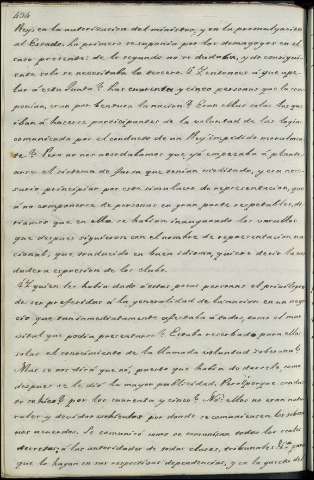 454
Rey; en la autorizacion del ministro, y en la promulgacion
al Estado. La primera se suponia por los demagogos en el
caso presente: de lo segundo no se dudaba, y de consigui-
ente solo se necesitaba la tercera. ¿Y entonces á que ape-
lar á esta Junta? Las cuarenta y cinco personas que la com-
ponian, eran por ventura la nacion? Eran ellas solas las que
iban á hacerse participantes de la voluntad de las
comunicada por el conducto de un Rey impedido moralmen-
te? Pero no nos acordabamos que yá empezaba á plante-
arse el sistema de farsa que tenian meditado, y era nece-
sario principiar por este simulacro de representacion, que
á no componerse de personas en gran parte respetables, di-
riamos que en ellas se habian inaugurado los
que despues siguieron con el nombre de representacion na-
cional; que traducido en buen idioma, quiere decir la ver-
dadera expresion de los clubs.
¿Y quien les habia dado á estas pocas personas el privilegio
de ser preferidas á la generalidad de la nacion en un nego-
cio que tan inmediatamente afectaba á todas, como el mas
vital que podia presentarse? Estaba reservado para ellas
solas el conocimiento de la llamada voluntad soberana?
Mas se nos dirá que no, puesto que habia de darsele, como
despues se le dió la mayor publicidad. Pero ¿porque conduc-
to se hizo? por los cuarenta y cinco? No: ellos no eran natu-
rales y debidos conductos por donde se comunicasen los sobera-
nos acuerdos. Se comunicó como se comunican todos los reales
decretos; á las autoridades de todas clases, tribunales &a. para
que lo hagan en sus respectivas dependencias, y en la gaceta del